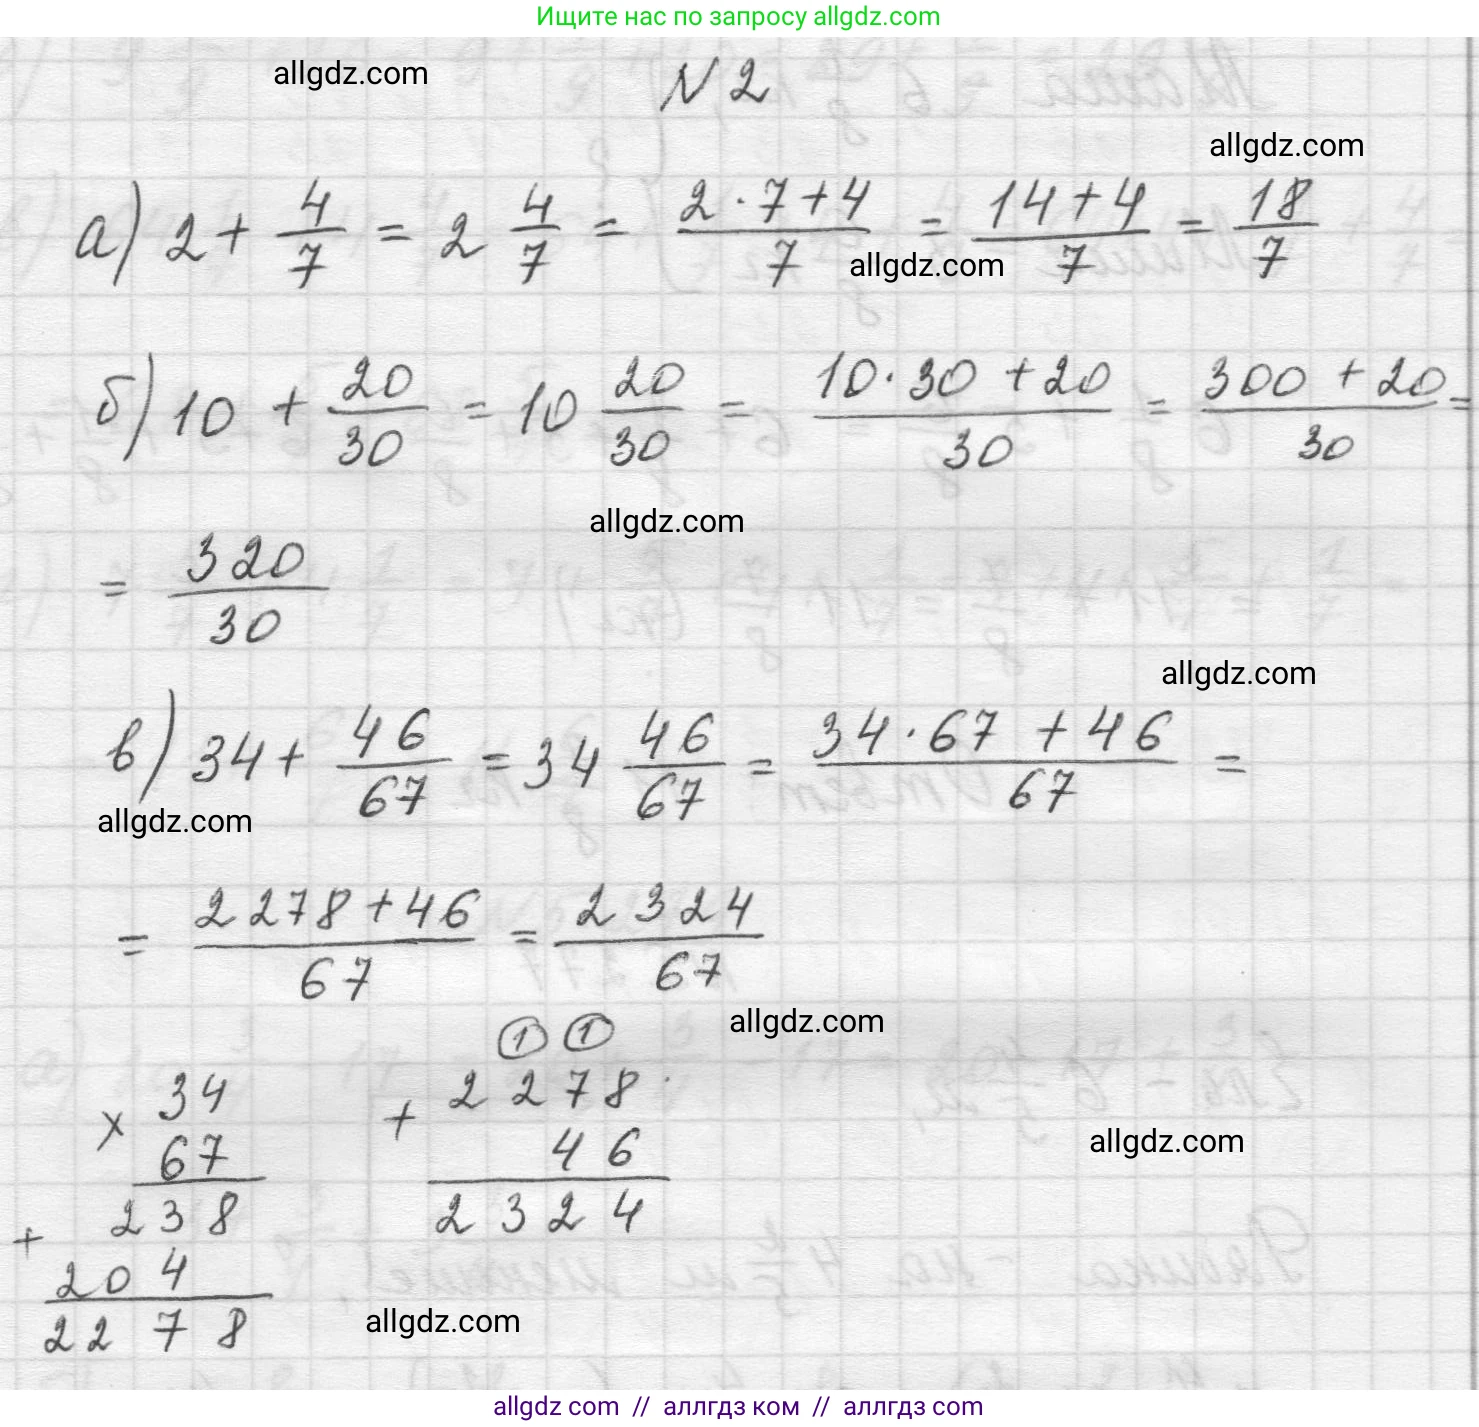 Ищите нас по запросу allgdz.com
allgdz.com
N 2
allgdz.com
а) 2 + 4/7 = 2 4/7 = (2·7+4)/7 = (14+4)/7 = 18/7
allgdz.com
б) 10 + 20/30 = 10 20/30 = (10·30+20)/30 = (300+20)/30 =
allgdz.com
= 320/30
allgdz.com
в) 34 + 46/67 = 34 46/67 = (34·67+46)/67 =
allgdz.com
= (2278+46)/67 = 2324/67
allgdz.com
① ①
× 34
67
238
+
204
2278
+ 2278
46
2324
allgdz.com
allgdz.com
allgdz com // аллгдз ком // аллгдз com